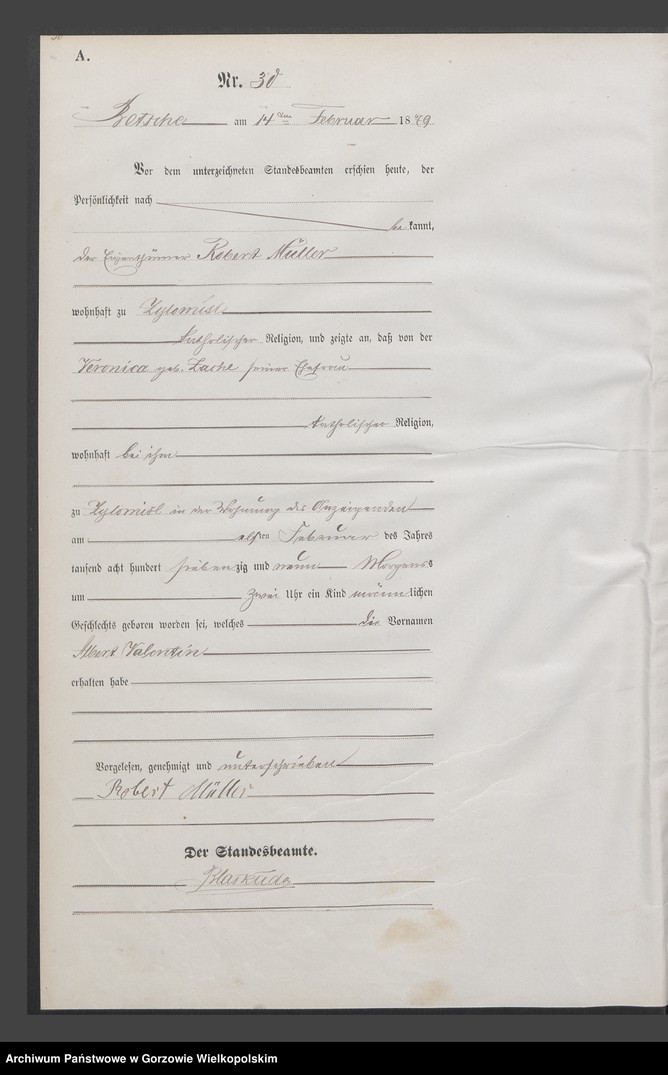 A.
Nr. 30
Betsche am 14ten Februar 1879
Vor dem unterzeichneten Standesbeamten erschien heute, der
Persönlichkeit nach
be kannt,
der Eigenthümer Robert Müller
wohnhaft zu Zylomisl
katholischer Religion, und zeigte an, daß von der
Veronica geb. Zache seiner Ehefrau
katholischer Religion,
wohnhaft bei ihm
zu Zylomisl in der Wohnung des Anzeigenden
am elften Februar des Jahres
tausend acht hundert siebenzig und neun Morgens
um zwei Uhr ein Kind männlichen
Geschlechts geboren worden sei, welches die Vornamen
Albert Valentin
erhalten habe
Vorgelesen, genehmigt und unterschrieben
Robert Müller
Der Standesbeamte.
Archiwum Państwowe w Gorzowie Wielkopolskim